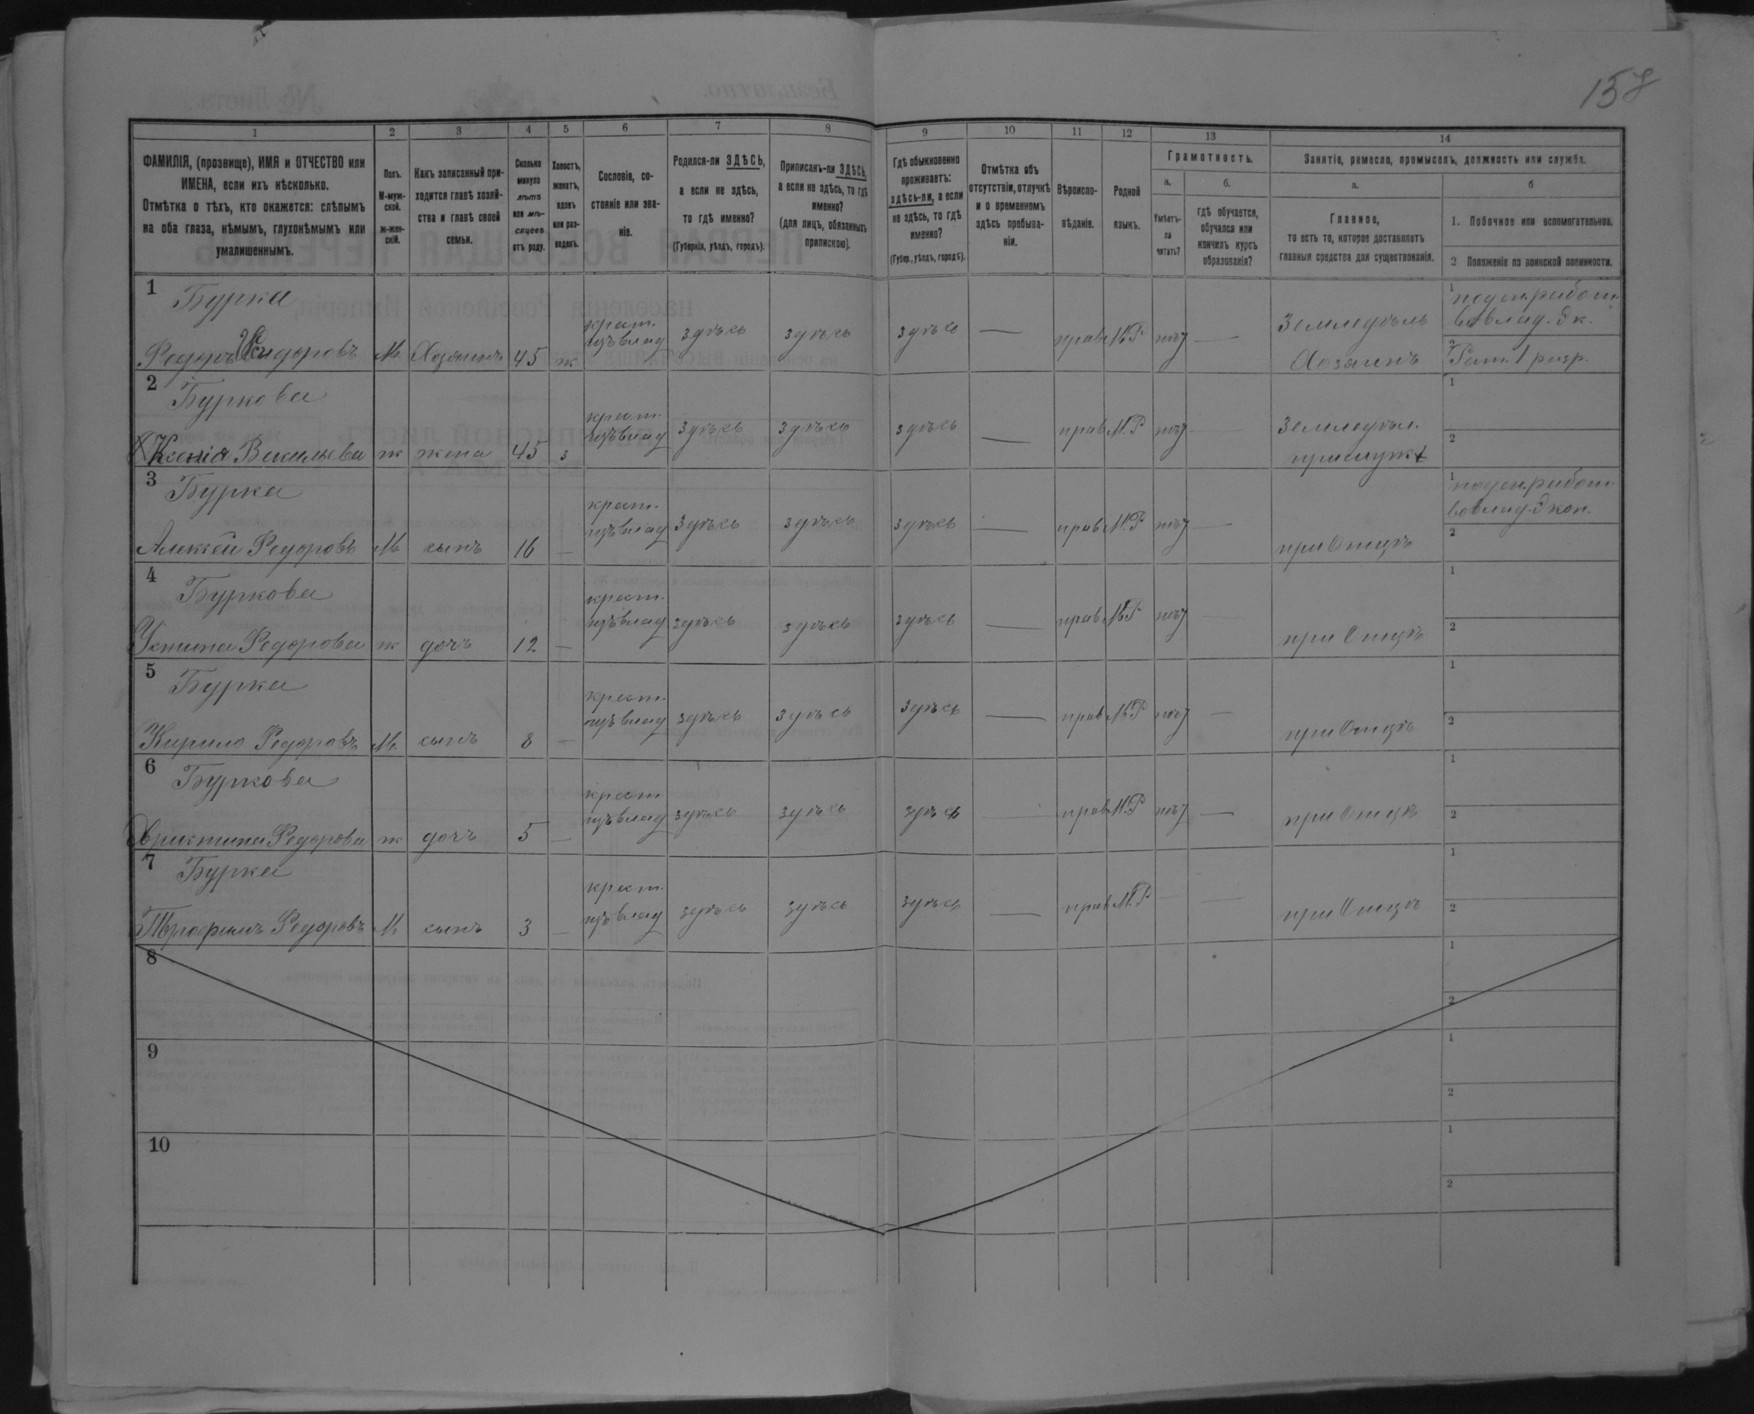 157
1 2 3 4 5 6 7 8 9 10 11 12 13 14
ФАМИЛІЯ, (прозвище), ИМЯ и ОТЧЕСТВО или ИМЕНА, если ихъ нѣсколько.
Отмѣтка о тѣхъ, кто окажется: слѣпымъ на оба глаза, нѣмымъ, глухонѣмымъ или умалишеннымъ.
Полъ. М-мужской. Ж-женскій.
Какъ записанный приходится главѣ хозяйства и главѣ своей семьи.
Сколько минуло лѣтъ или мѣсяцевъ отъ роду.
Холостъ, женатъ, вдовъ или разведенъ.
Сословіе, состояніе или званіе.
Родился-ли ЗДѢСЬ, а если не здѣсь, то гдѣ именно?
(Губернія, уѣздъ, городъ).
Приписанъ-ли ЗДѢСЬ, а если не здѣсь, то гдѣ именно?
(для лицъ, обязанныхъ припискою).
Гдѣ обыкновенно проживаетъ: здѣсь-ли, а если не здѣсь, то гдѣ именно?
(Губер., уѣздъ, городъ).
Отмѣтка объ отсутствіи, отлучкѣ и о временномъ здѣсь пребываніи.
Вѣроисповѣданіе.
Родной языкъ.
Грамотность.
а. Умѣетъ-ли читать?
б. Гдѣ обучается, обучался или кончилъ курсъ образованія?
Занятіе, ремесло, промыселъ, должность или служба.
а. Главное, то есть то, которое доставляетъ главныя средства для существованія.
б
1. Побочное или вспомогательное.
2 Положеніе по воинской повинности.
1 Бурка
Федоръ Сидоровъ М Хозяинъ 45 ж крест. изъ влад здѣсь здѣсь здѣсь — прав М.Р нѣт — Земледѣль Хозяинъ
1 поден. работ. во влад. Эк.
2 Рат. 1 разр.
2 Буркова
Ксенія Васильева ж жена 45 з крест. изъ влад здѣсь здѣсь здѣсь — прав М.Р нѣт — Земледѣл. 1 2
3 Бурка
Алексѣй Федоровъ М сынъ 16 — крест. изъ влад здѣсь здѣсь здѣсь — прав М.Р нѣт — при Отцѣ
1 поден. работ во влад. Экон.
2
4 Буркова
Устина Федорова ж дочь 12 — крест. изъ влад здѣсь здѣсь здѣсь — прав М.Р нѣт — при Отцѣ 1 2
5 Бурка
Кирило Федоровъ М. сынъ 8 — крест. изъ влад здѣсь здѣсь здѣсь — прав М.Р нѣт — при Отцѣ 1 2
6 Буркова
Христина Федорова ж дочь 5 — крест изъ влад здѣсь здѣсь здѣсь — прав М.Р нѣт — при Отцѣ 1 2
7 Бурка
Трофимъ Федоровъ М сынъ 3 — крест. изъ влад здѣсь здѣсь здѣсь — прав М.Р — — при Отцѣ 1 2
8 1 2
9 1 2
10 1 2